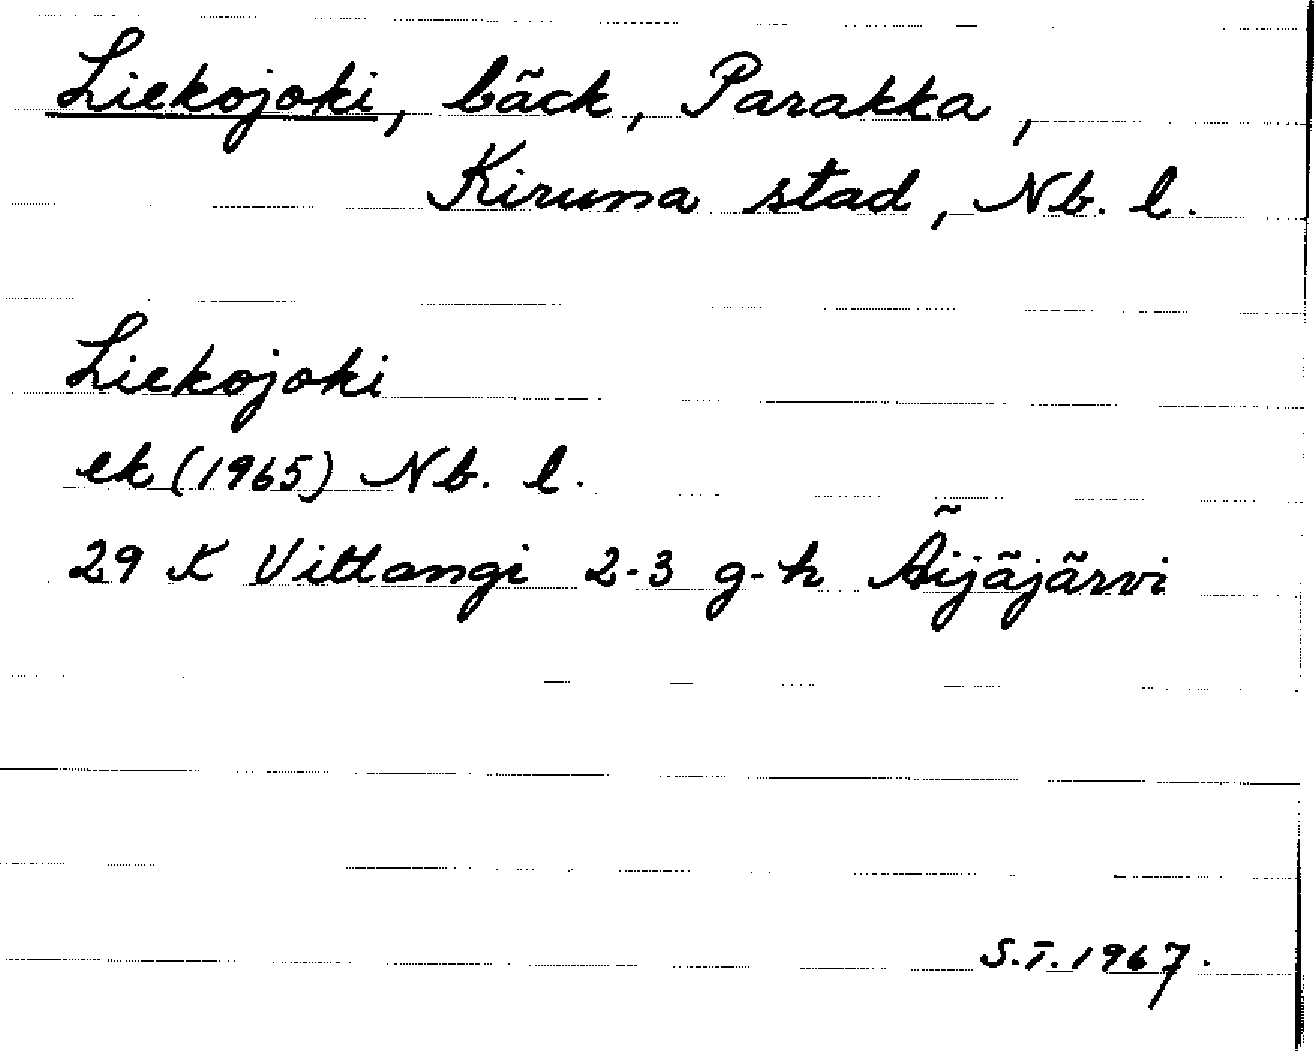 Liekojoki, bäck, Parakka,
Kiruna stad, Nb. l.
Liekojoki
ek (1965) Nb. l.
29 K Vittangi 2-3 g-h Äijäjärvi
S.T. 1967.